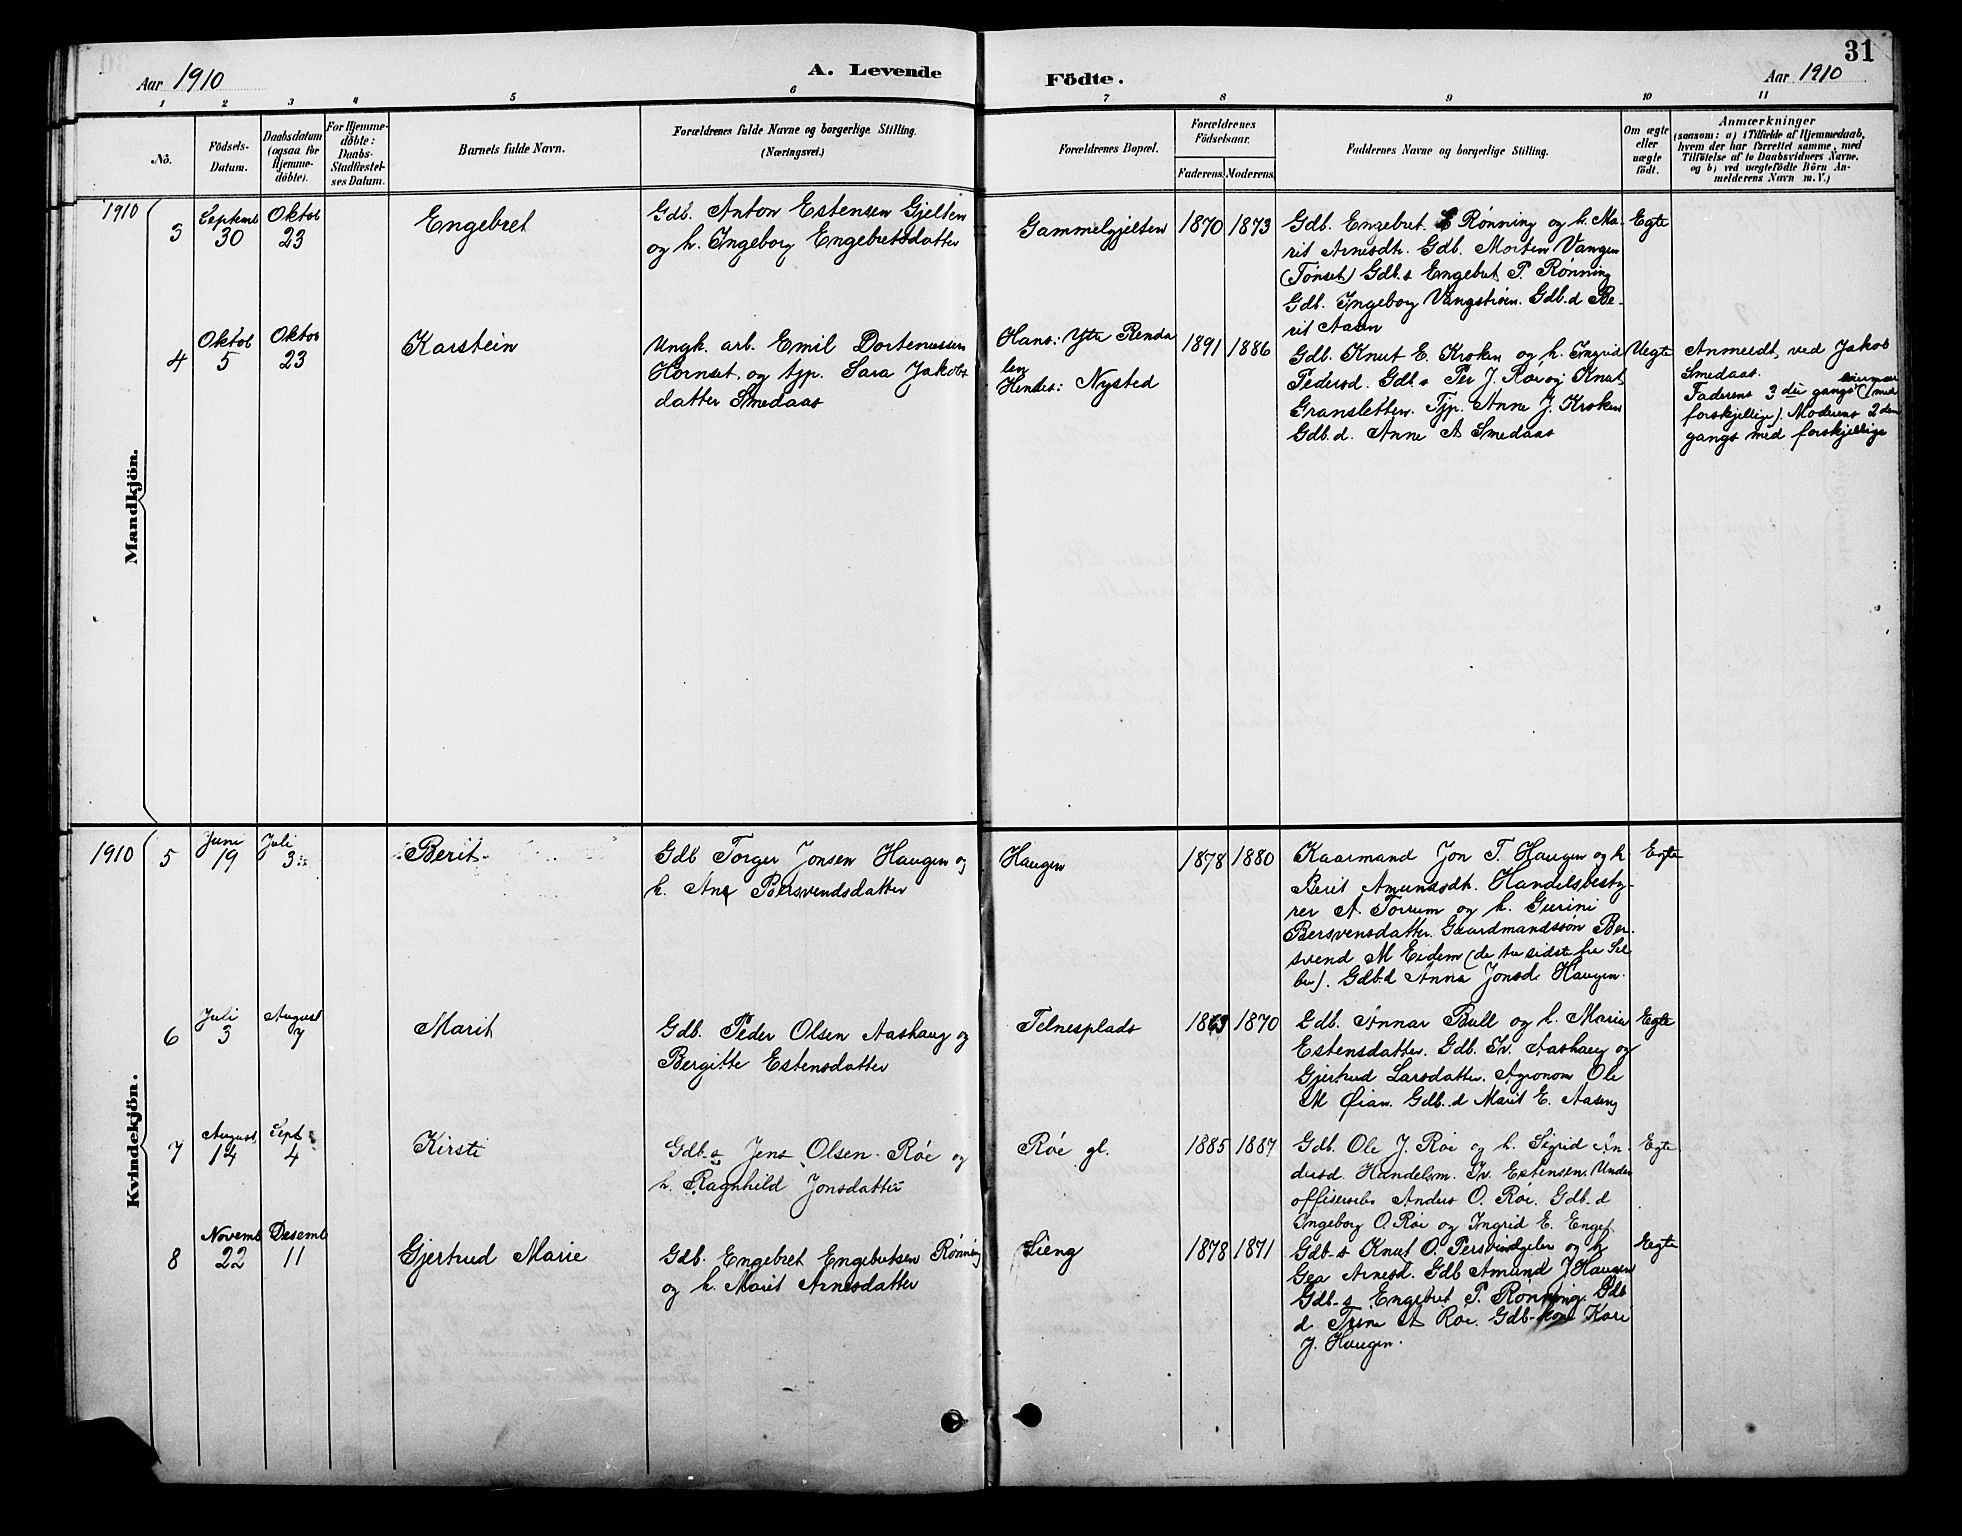 31
Aar 1910
A. Levende
Födte.
Aar 1910
1 2 3 4 5 6 7 8 9 10 11
No.
Födsels-
Datum.
Daabsdatum
(ogsaa for
Hjemme-
döbte).
For Hjemme-
döbte:
Daabs-
Stadfæstel-
ses Datum.
Barnets fulde Navn.
Forældrenes fulde Navne og borgerlige Stilling.
(Næringsvei.)
Forældrenes Bopæl.
Forældrenes
Födselsaar.
Faderens. Moderens.
Faddernes Navne og borgerlige Stilling.
Om ægte
eller
uægte
födt.
Anmærkninger
(saasom: a) i Tilfælde af Hjemmedaab,
hvem der har forrettet samme, med
Tilföielse af to Daabsvidners Navne.
og b) ved uægtefödte Börn An-
melderens Navn m. V.)
Mandkjön.
1910
3
Septemb
30
Oktob
23
Engebret
Gdb. Anton Estensen Gjelten
og h. Ingeborg Engebretsdatter
Gammelgjelten
1870 1873
Gdb. Engebret E Rønning og h. Ma-
rit Arnesdtr. Gdb. Morten Vangen
(Tønset) Gdb.s Engebret P. Rønning
Gdb. Ingeborg Vangstrøen. Gdb.d Be-
rit Aasen
Egte
4
Oktob
5
Oktob
23
Karstein
Ungk. arb. Emil Dortenussen
Hornset. og tjp. Sara Jakobs
datter Smedaas
Hans: Ytre Renda
len
Hendes: Nysted
1891 1886
Gdb. Knut E. Kroken og h. Ingrid
Pedersd. Gdb.s Per J. Røe og Knut
Gransletten. Tjp. Anne J. Kroken
Gdb.d. Anne A Smedaas
Uegte
Anmeldt ved Jakob
Smedaas.
Faderens 3 die gangs leiermaal (med
forskjellige). Moderens 2 den
gangs med forskjellige
Kvindekjön.
1910
5
Juni
19
Juli
3
Berit
Gdb Torger Jonsen Haugen og
h. Ane Bersvendsdatter
Haugen
1878 1880
Kaarmand Jon T. Haugen og h
Berit Amundsdt. Handelsbesty-
rer A Torum og h. Gurini
Bersvensdatter. Gaardmandssøn Ber-
svend M Eidem (de tre sidste fra Sel-
bu). Gdb.d Anna Jonsd. Haugen.
Egte
6
Juli
3
August
7
Marit
Gdb. Peder Olsen Aashaug og
Bergitte Estensdatter
Telnesplads
1863 1870
Gdb. Annar Bull og h. Maria
Estensdatter. Gdb. Iv. Aashaug og
Gjertrud Larsdatter. Agronom Ole
M Øian. Gdb.d Marit E. Aaseng
Egte
7
August
14
Sept
4
Kirsti
Gdb-s Jens Olsen Røe og
h. Ragnhild Jonsdatter
Røe gl.
1885 1887
Gdb. Ole J. Røe og h. Sigrid An-
dersd Handelsm. Iv. Estensen. Under
offiserselev Anders O. Røe. Gdb.d
Ingeborg O. Røe og Ingrid E. Enget
Egte
8
Novemb
22
Desemb
11
Gjertrud Marie
Gdb. Engebret Engebretsen Rønning
og h. Marit Arnesdatter
Lieng
1878 1871
Gdb-s Knut O. Persvindgelen og h
Gea Arnesd. Gdb Amund J Haugen
Gdb-s Engebret P. Rønning. Gdb
d Trine A Røe. Gdb-kone Kari
J. Haugen.
Egte